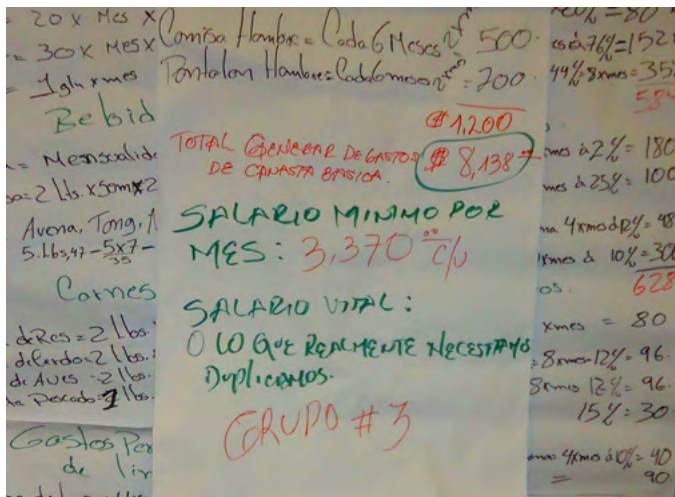 20 x Mes x
= 30 x Mes x
= 1 gln x mes
Bebid
= Mensualid
= 2 Lbs. x 5 am x 2
Avena, Tang,
5. Lbs, 47 - 5x7 -
35
Carnes
de Res = 2 Lbs.
de Cerdo = 2 lbs.
de Aves = 2 lbs.
de Pescado = 1 lbs.
Gastos Per
de lin
Camisa Hombre = Cada 6 Meses 2 500.
Pantalon Hombre = Cada 6 meses 2 = 700.
₡ 1,200
TOTAL GENERAR DE GASTOS ₡ 8,138=
DE CANASTA BASICA.
SALARIO MINIMO POR
MES: 3,370 °° c/u
SALARIO VITAL:
O LO QUE REALMENTE NECESITAMOS
Duplicamos.
GRUPO # 3
% = 80
es à 76% = 152
44% = 8xmes = 35
584
mes à 2% = 180
mes à 25% = 100
4xmes à 12% = 48
xmes à 10% = 30
os. 628
xmes = 80
= 8xmes 12% = 96.
8xmes 12% = 96.
15% = 30
4xmes à 10% = 40
= 90